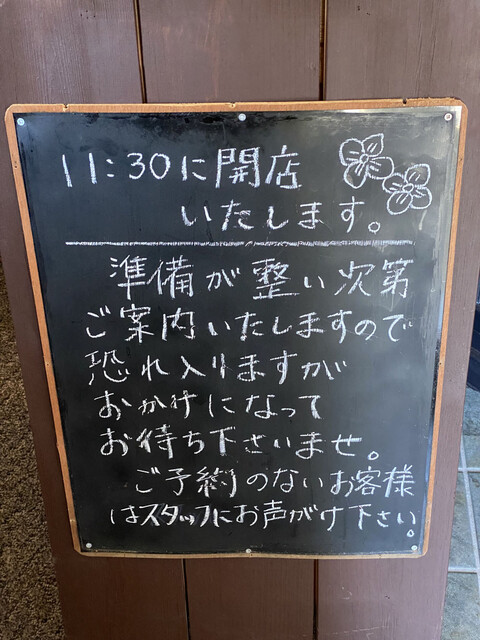 11:30に開店
いたします。
準備が整い次第
ご案内いたしますので
恐れ入りますが
おかけになって
お待ち下さいませ。
ご予約のないお客様
はスタッフにお声がけ下さい。